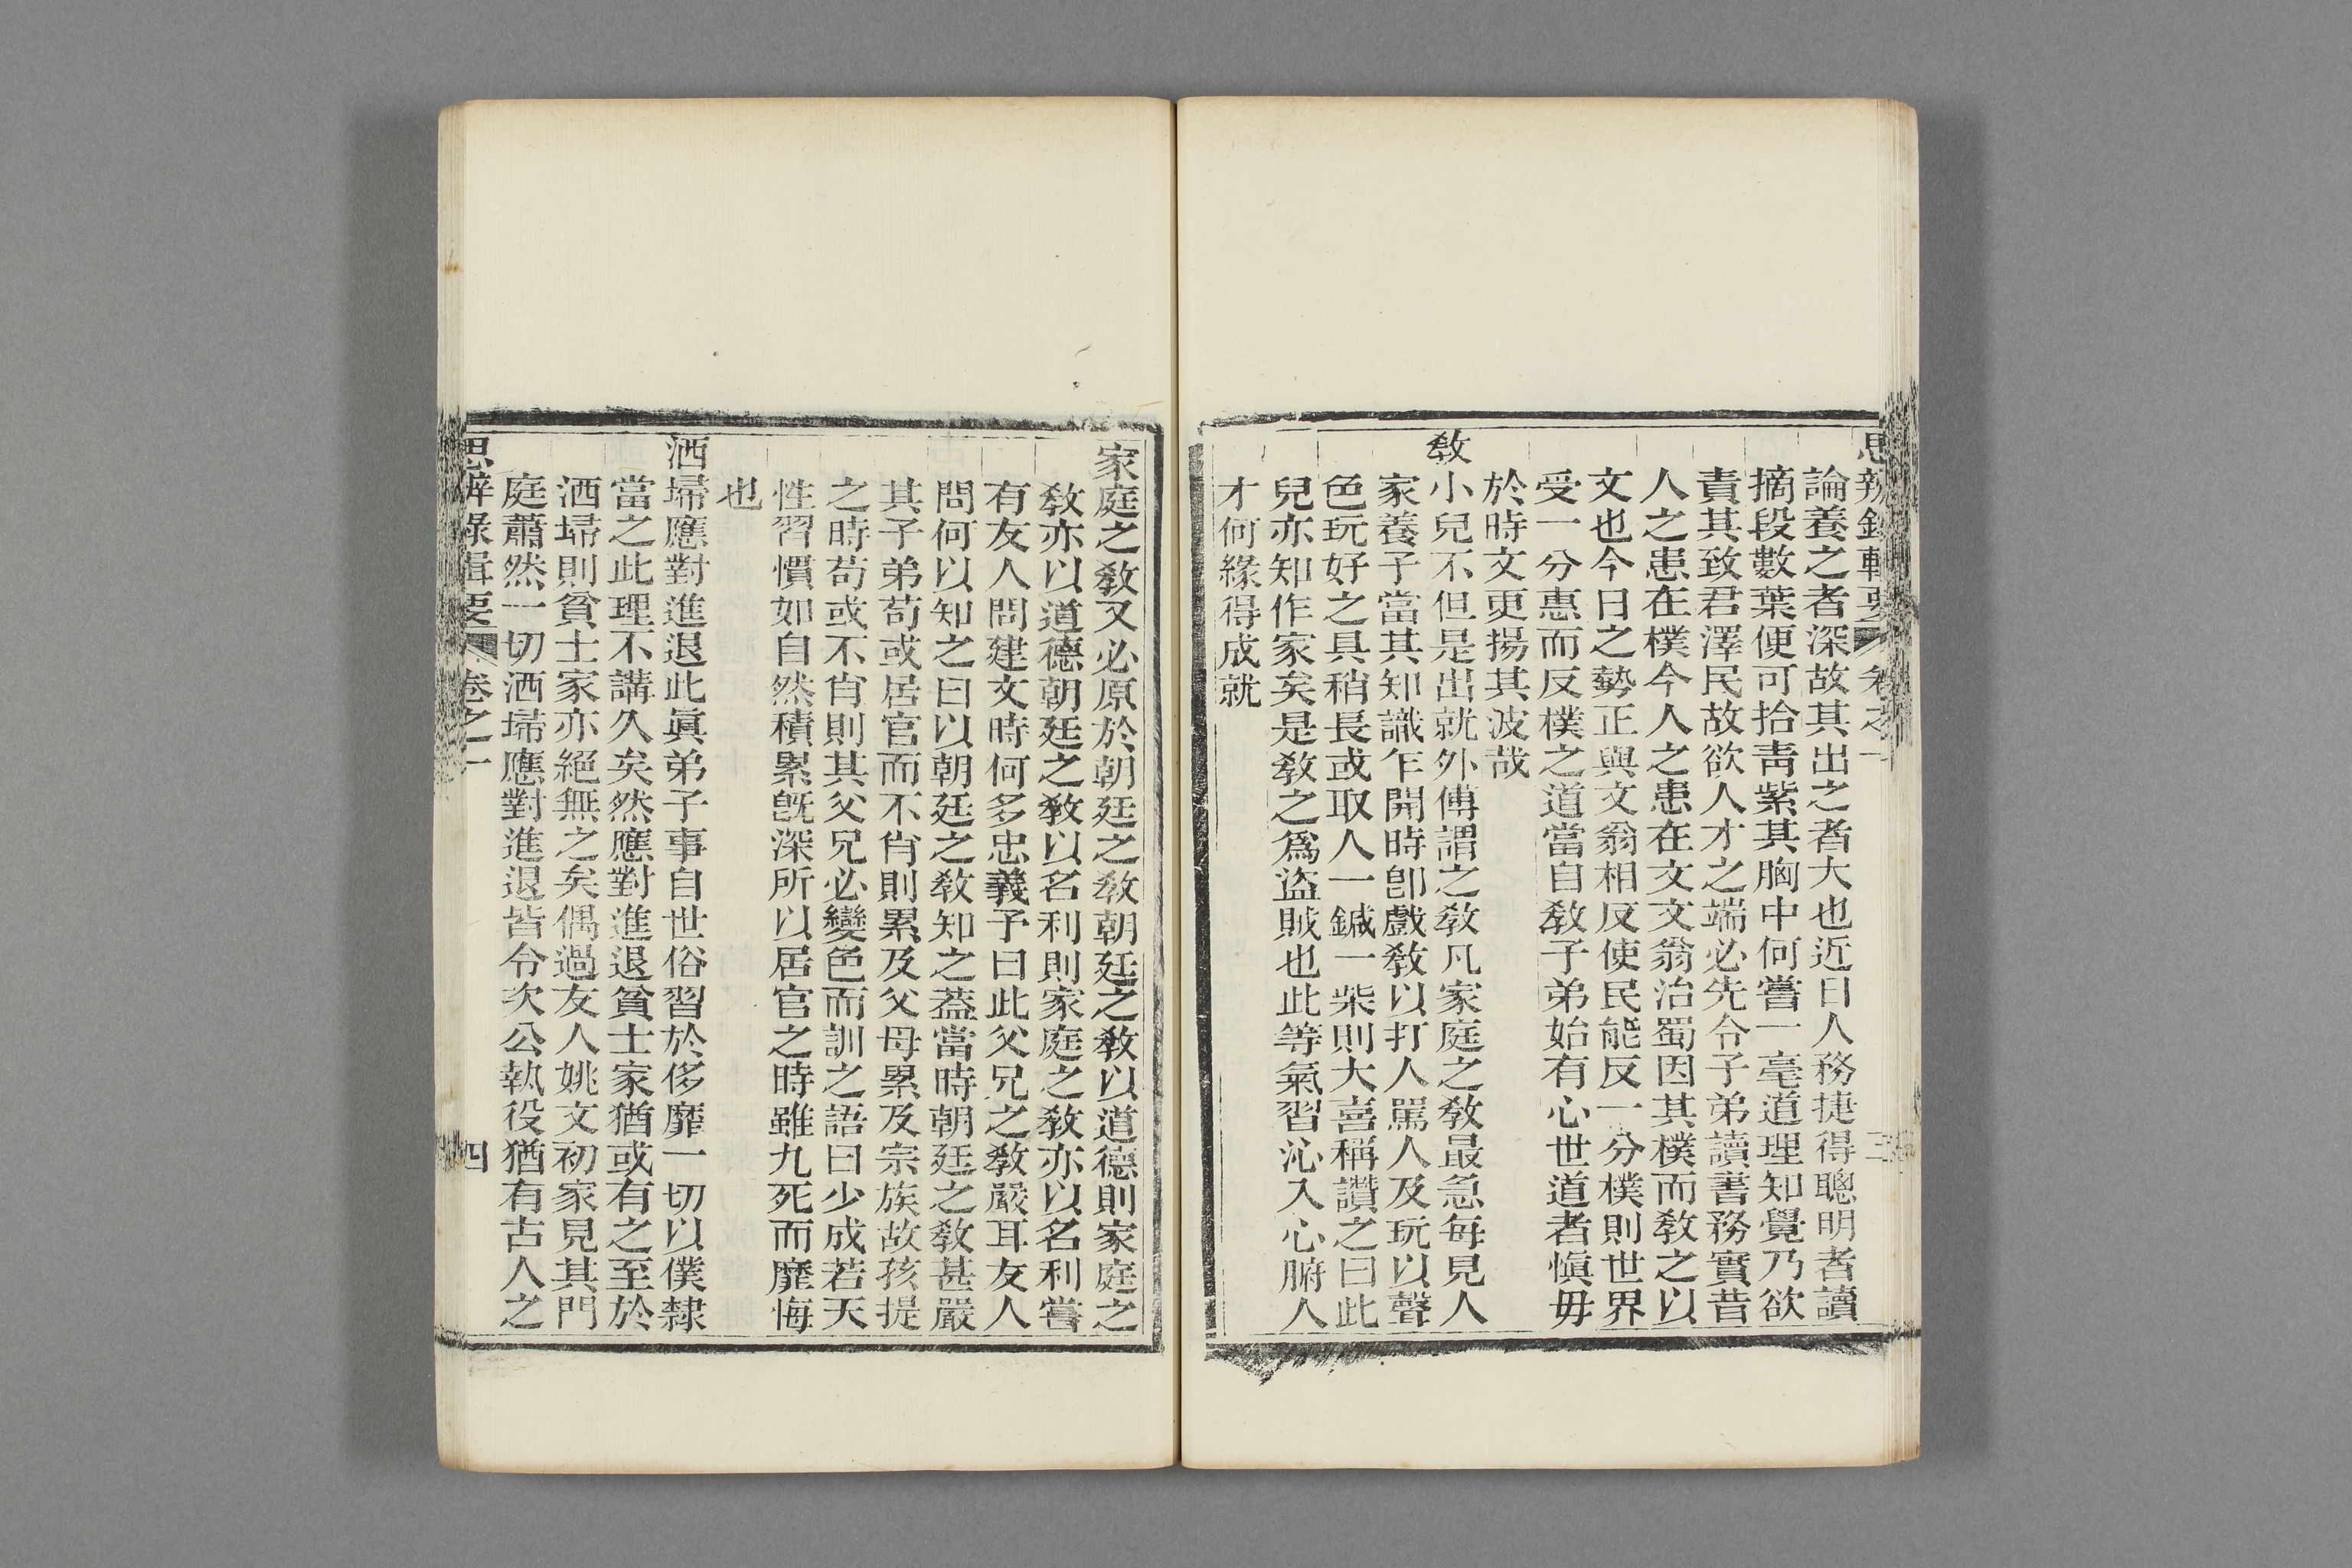 思辨錄輯要 卷之一 三
論養之者深故其出之者大也近日人務捷得聰明者讀
摘段數葉便可拾靑紫其胸中何嘗一毫道理知覺乃欲
責其致君澤民故欲人才之端必先令子弟讀書務實昔
人之患在樸今人之患在文文翁治蜀因其樸而敎之以
文也今日之勢正與文翁相反使民能反一分樸則世界
受一分惠而反樸之道當自敎子弟始有心世道者愼毋
於時文更揚其波哉
敎小兒不但是出就外傅謂之敎凡家庭之敎最急每見人
家養子當其知識乍開時卽戲敎以打人罵人及玩以聲
色玩好之具稍長或取人一鍼一柴則大喜稱讚之曰此
兒亦知作家矣是敎之爲盜賊也此等氣習沁入心腑人
才何緣得成就
家庭之敎又必原於朝廷之敎朝廷之敎以道德則家庭之
敎亦以道德朝廷之敎以名利則家庭之敎亦以名利嘗
有友人問建文時何多忠義予曰此父兄之敎嚴耳友人
問何以知之曰以朝廷之敎知之葢當時朝廷之敎甚嚴
其子弟苟或居官而不肖則累及父母累及宗族故孩提
之時苟或不肖則其父兄必變色而訓之語曰少成若天
性習慣如自然積累旣深所以居官之時雖九死而靡悔
也
洒埽應對進退此眞弟子事自世俗習於侈靡一切以僕隸
當之此理不講久矣然應對進退貧士家猶或有之至於
洒埽則貧士家亦絕無之矣偶過友人姚文初家見其門
庭蕭然一切洒埽應對進退皆令次公執役猶有古人之
思辨錄輯要 卷之一 四